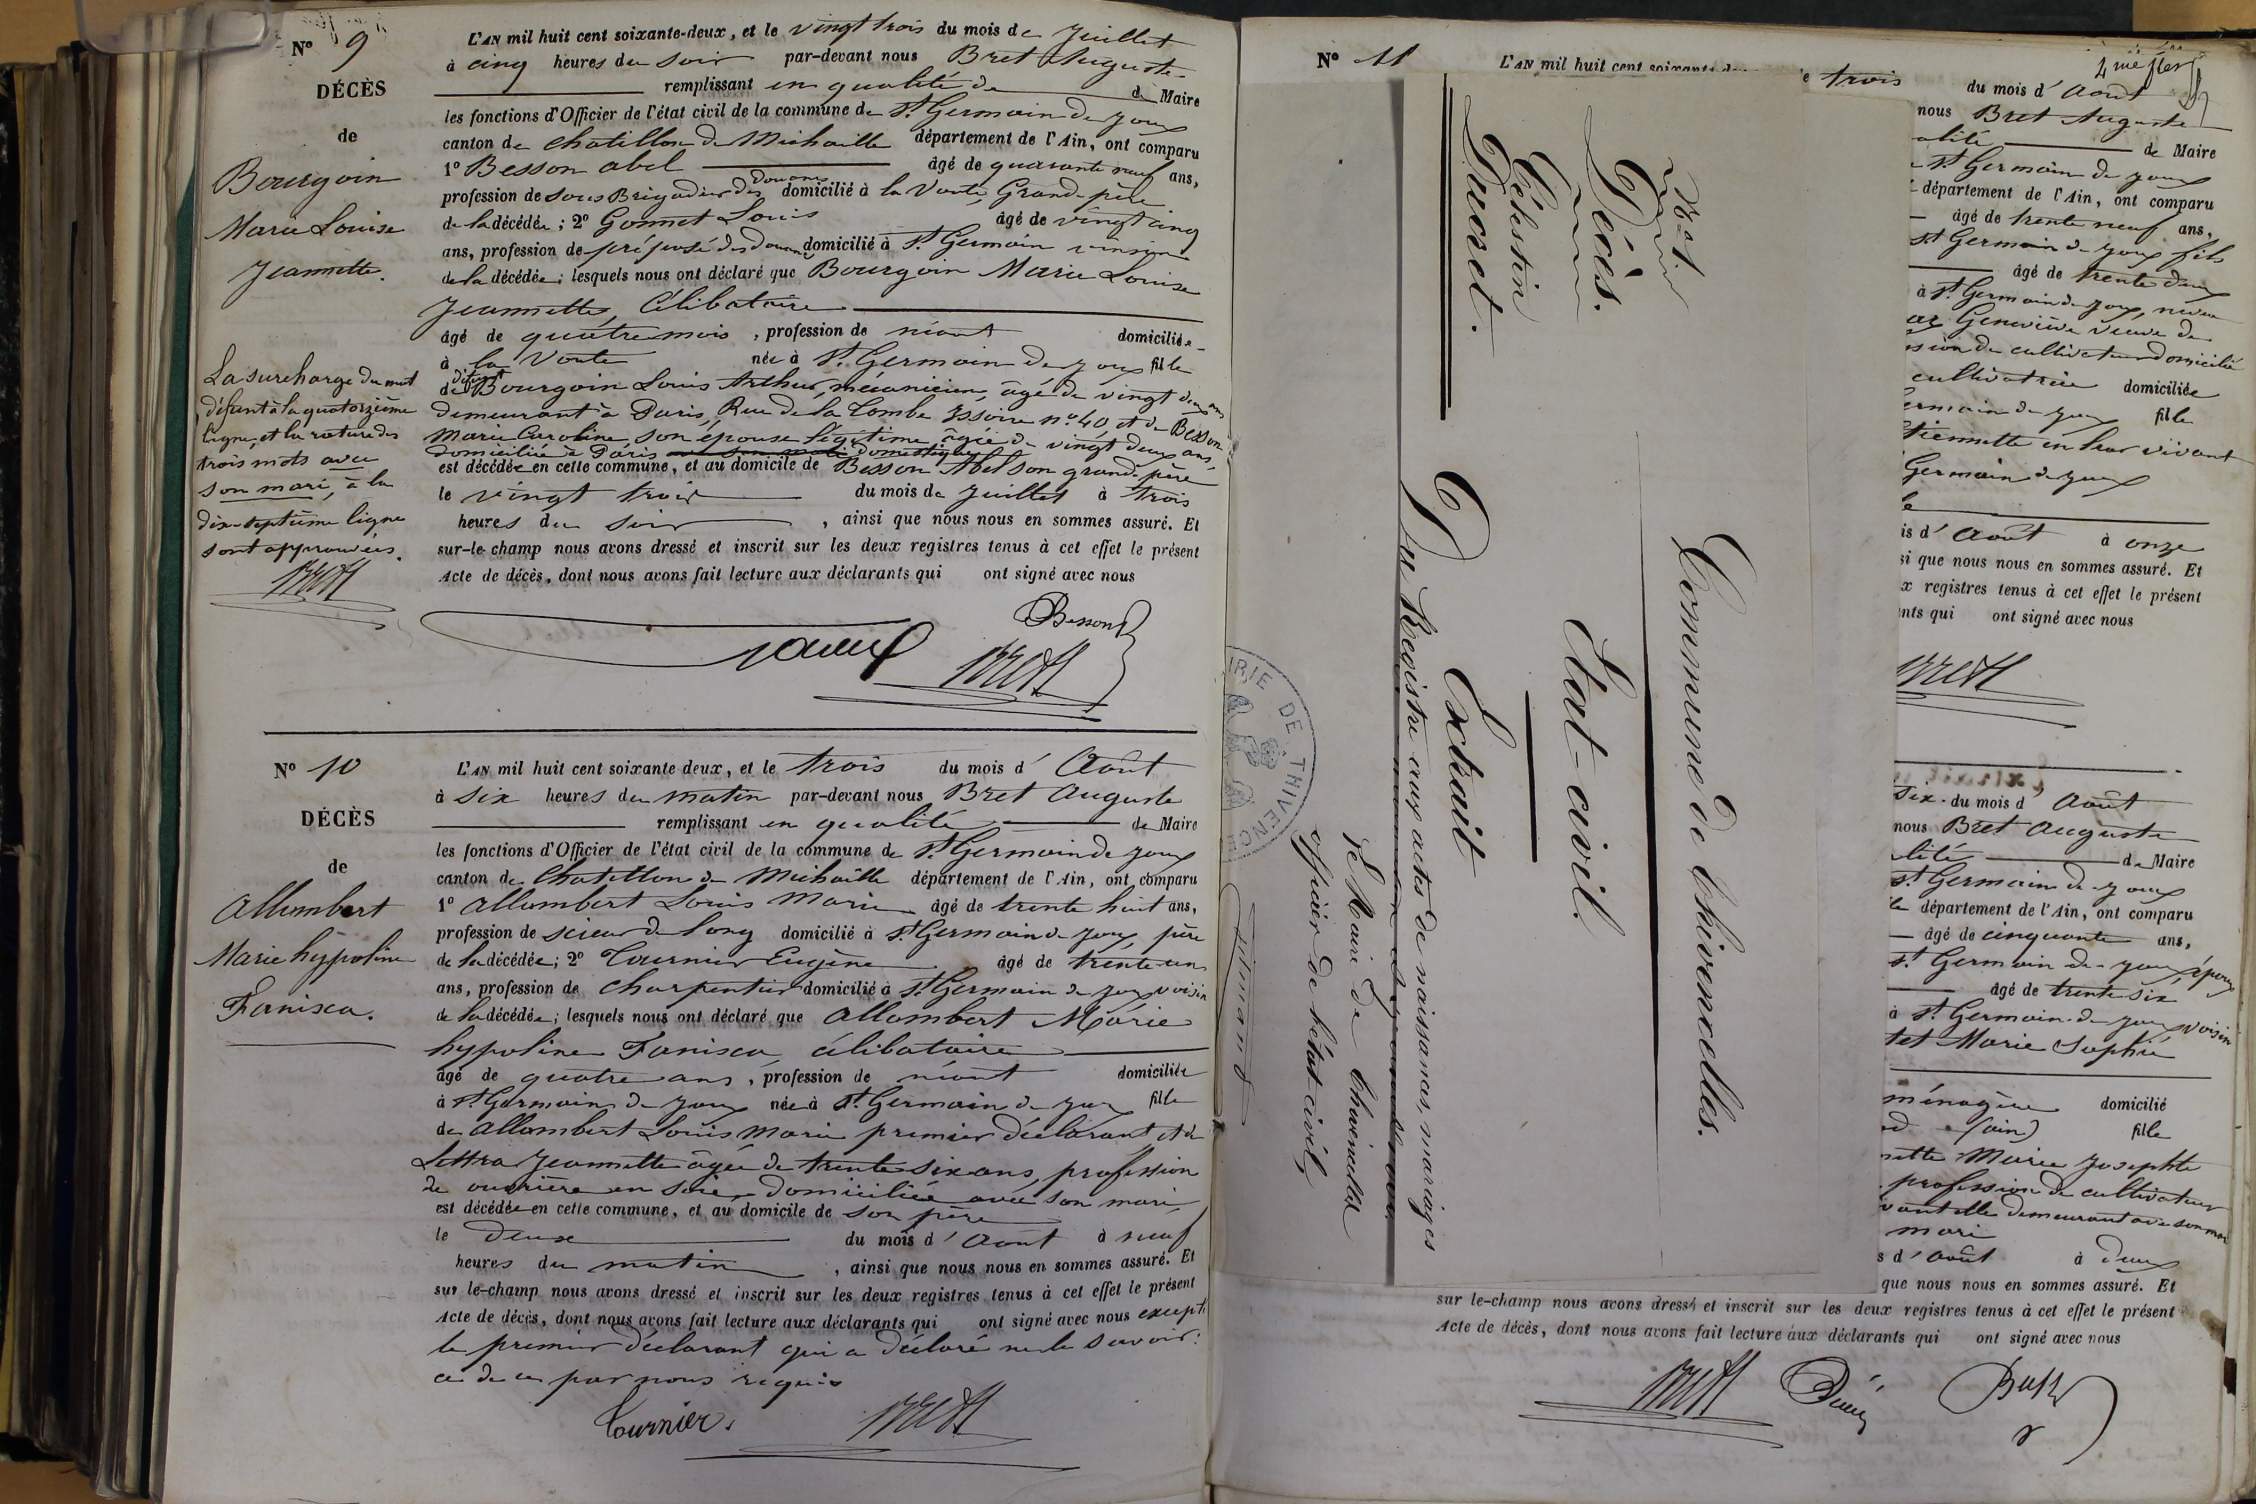 N° 9
DÉCÈS
de
Bourgoin
Marie Louise
Jeannette.
La surcharge du mot
défunt à la quatorzième
ligne, et la rature des
trois mots avec
son mari, à la
dix-septième ligne
sont approuvées.
L'AN mil huit cent soixante-deux, et le vingt trois du mois de Juillet
à cinq heures du soir par-devant nous Bret Auguste
remplissant en qualité de de Maire
les fonctions d'Officier de l'état civil de la commune de St Germain de Joux
canton de Chatillon de Michaille département de l'Ain, ont comparu
1° Besson abel âgé de quarante neuf ans,
profession de sous Brigadier des douanes domicilié à la Voute, Grand-père
de la décédée; 2° Gonnet Louis âgé de vingt cinq
ans, profession de préposé des douanes domicilié à St Germain voisin
de la décédée; lesquels nous ont déclaré que Bourgoin Marie Louise
Jeannette, Célibataire
âgé de quatre mois, profession de néant domiciliée
à la Voute née à St Germain de Joux fille
de défunt Bourgoin Louis Arthur, mécanicien, âgé de vingt deux ans
demeurant à Paris, Rue de la Tombe Issoire n° 40, et de Besson
Marie Caroline, son épouse légitime âgée de vingt deux ans,
domiciliée à Paris avec son mari domestique
est décédée en cette commune, et au domicile de Besson Abel son grand-père
le vingt trois du mois de Juillet à trois
heures du soir, ainsi que nous nous en sommes assuré. Et
sur-le-champ nous avons dressé et inscrit sur les deux registres tenus à cet effet le présent
Acte de décès, dont nous avons fait lecture aux déclarants qui ont signé avec nous
Besson
Bret
N° 10
DÉCÈS
de
Allombert
Marie hypoline
Fanisca.
L'AN mil huit cent soixante deux, et le trois du mois d'Août
à six heures du matin par-devant nous Bret Auguste
remplissant en qualité de Maire
les fonctions d'Officier de l'état civil de la commune de St Germain de Joux
canton de Chatillon de Michaille département de l'Ain, ont comparu
1° Allombert Louis Marie âgé de trente huit ans,
profession de scieur de long domicilié à St Germain de Joux, père
de la décédée; 2° Tournier Eugène âgé de trente-un
ans, profession de Charpentier domicilié à St Germain de Joux voisin
de la décédée; lesquels nous ont déclaré que Allombert Marie
hypoline Fanisca, célibataire
âgé de quatre ans, profession de néant domiciliée
à St Germain de Joux née à St Germain de Joux fille
de Allombert Louis Marie premier déclarant et de
Jeannette âgée de trente six ans, profession
de ouvrière en soie, domiciliée avec son mari
est décédée en cette commune, et au domicile de son père
le deux du mois d'Août à neuf
heures du matin, ainsi que nous nous en sommes assuré. Et
sur le-champ nous avons dressé et inscrit sur les deux registres tenus à cet effet le présent
Acte de décès, dont nous avons fait lecture aux déclarants qui ont signé avec nous excepté
le premier déclarant qui a déclaré ne le savoir:
ce de ce par nous requis
Tournier
Bret
N° 11
L'AN mil huit cent soixante-d
4me
Commune de Thivencelles.
État-civil.
Extrait
Du Registre aux actes de naissances, mariages
Le Maire de Thivencelles
officier de l'état-civil,
N° 1
Décès.
Célestin
Ducret.
MAIRIE DE THIVENCE
trois du mois d'Août
nous Bret Auguste
alité de Maire
St Germain de Joux
département de l'Ain, ont comparu
âgé de trente neuf ans,
St Germain de Joux fils
âgé de trente deux
à St Germain de Joux, neveu
Geneviève veuve de
sion de cultivateur domicilié
cultivatrice domiciliée
ermain de Joux fille
tiennette en leur vivant
Germain de Joux
le
is d'Août à onze
si que nous nous en sommes assuré. Et
x registres tenus à cet effet le présent
nts qui ont signé avec nous
Bret
six du mois d'Août
nous Bret Auguste
lité de Maire
St Germain de Joux
le département de l'Ain, ont comparu
âgé de cinquante ans,
St Germain de Joux, époux
âgé de trente six
à St Germain de Joux voisin
tet Marie Sophie
ménagère domicilié
(ain) fille
nette Marie Josephte
profession de cultivateur
vant elle demeurant avec son mari
mari
s d'Août à deux
que nous nous en sommes assuré. Et
sur le-champ nous avons dressé et inscrit sur les deux registres tenus à cet effet le présent
Acte de décès, dont nous avons fait lecture aux déclarants qui ont signé avec nous
Bret